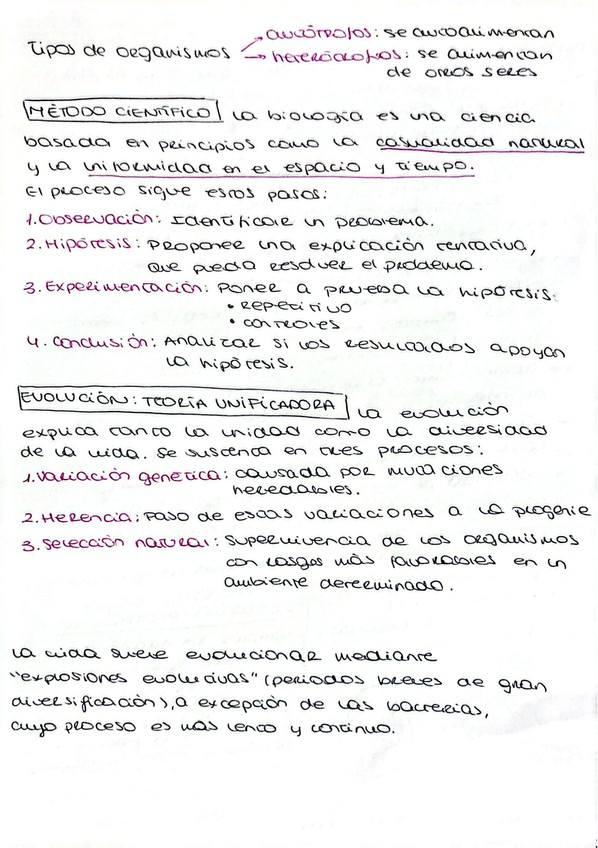 autótrofos: se autoalimentan
Tipos de organismos
heterótrofos: se alimentan
de otros seres
MÉTODO CIENTÍFICO La biología es una ciencia
basada en principios como la casualidad natural
y la uniformidad en el espacio y tiempo.
El proceso sigue estos pasos:
1. Observación: Identificar un problema.
2. Hipótesis: Proponer una explicación tentativa,
que pueda resolver el problema.
3. Experimentación: Poner a prueba la hipótesis:
• repetitivo
• controles
4. Conclusión: Analizar si los resultados apoyan
la hipótesis.
EVOLUCIÓN: TEORÍA UNIFICADORA La evolución
explica tanto la unidad como la diversidad
de la vida. Se sustenta en tres procesos:
1. Variación genética: causada por mutaciones
heredables.
2. Herencia: Paso de estas variaciones a la progenie
3. Selección natural: Supervivencia de los organismos
con rasgos más favorables en un
ambiente determinado.
La vida suele evolucionar mediante
"explosiones evolutivas" (periodos breves de gran
diversificación), a excepción de las bacterias,
cuyo proceso es más lento y continuo.